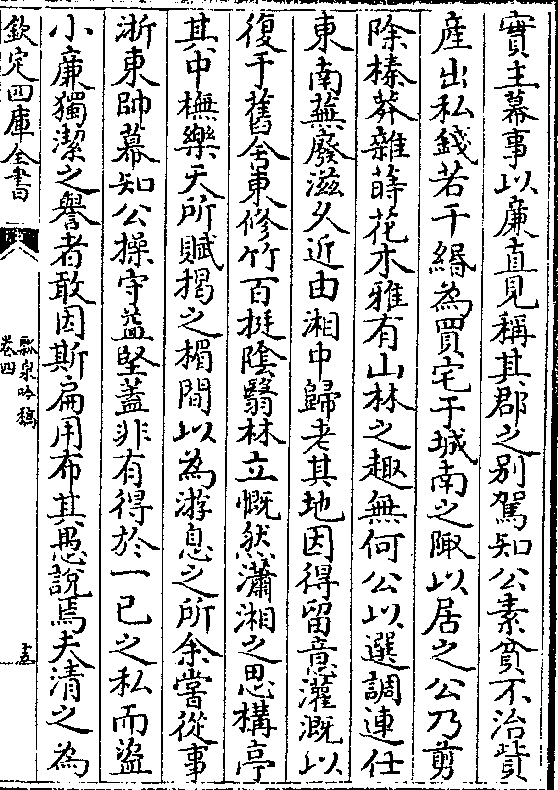 實主幕事以廉直見稱其郡之别駕知公素貧不治貲
產出私錢若干緡為買宅于城南之陬以居之公乃剪
除榛莽雜蒔花木雅有山林之趣無何公以選調連仕
東南蕪廢滋久近由湘中歸老其地因得留意灌溉以
復于舊舍東修竹百挺陰翳林立慨然瀟湘之思構亭
其中撫樂天所賦揭之楣間以為游息之所余嘗從事
浙東帥幕知公操守益堅蓋非有得於一已之私而盜
小廉獨潔之譽者敢因斯扁用布其愚說焉夫清之為
欽定四庫全書
瓢泉吟稿
卷四
五